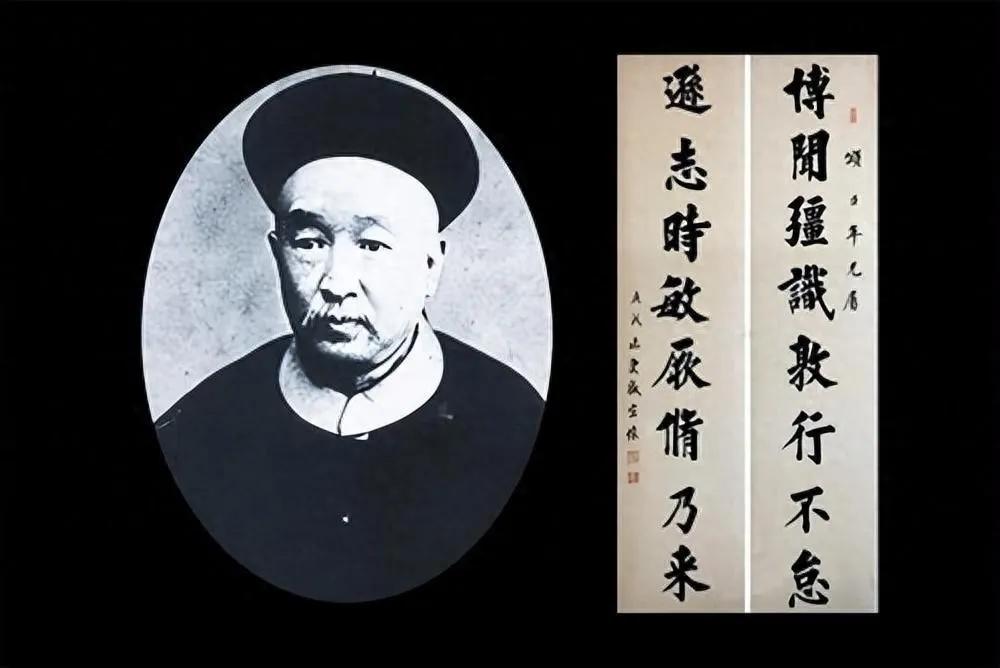 博聞彊識敦行不怠
年兄屬
遜志時敏厥脩乃来